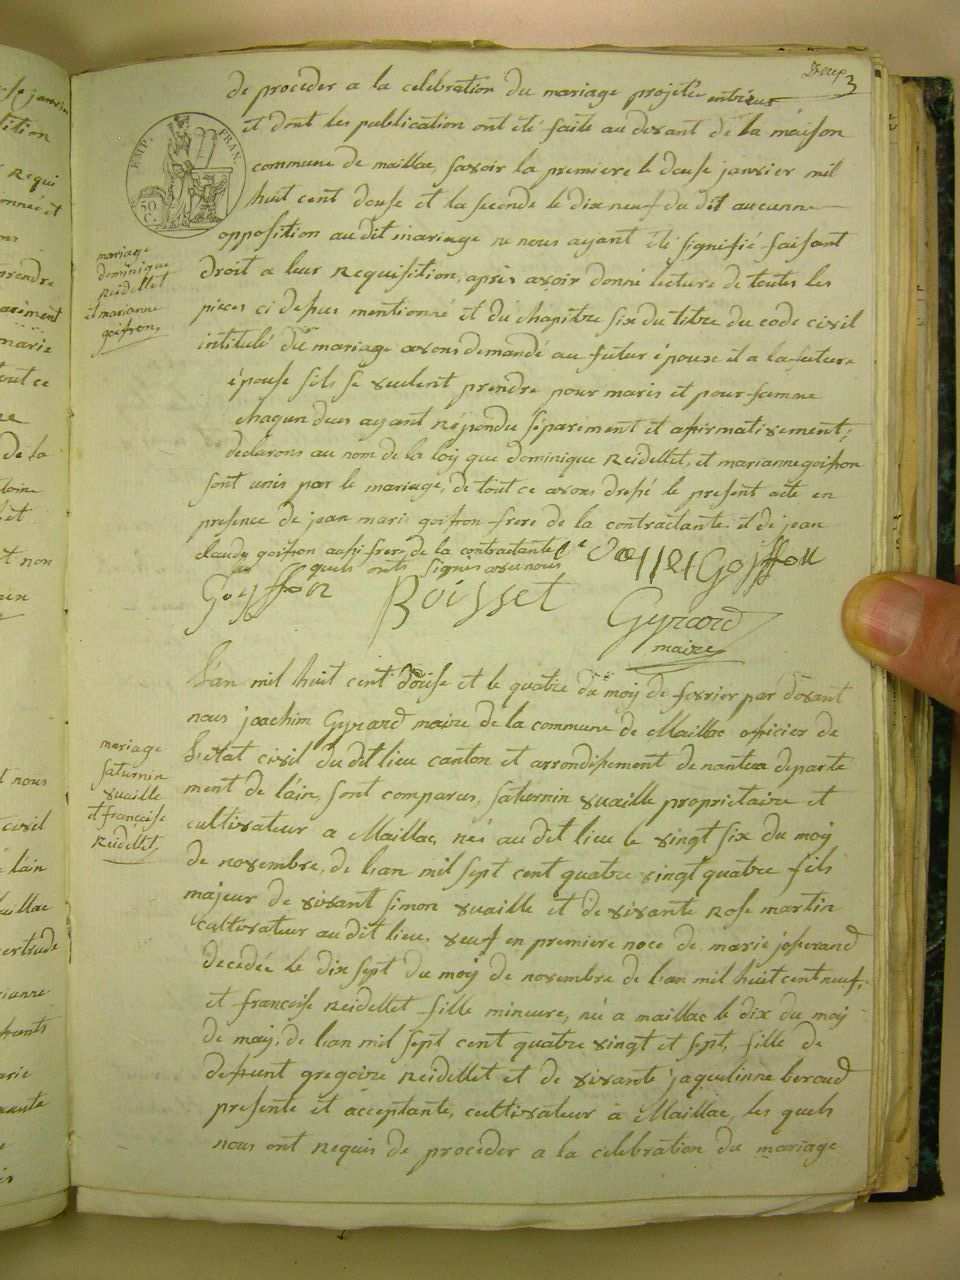 3
de proceder a la celebration du mariage projeté entre eux
et dont les publication ont été faite au devant de la maison
commune de maillac, savoir la premiere le douse janvier mil
huit cent douse et la seconde le dix neuf du dit aucunne
opposition au dit mariage ne nous ayant été signifié faisant
droit a leur Requisition, après avoir donné lecture de toutes les
pieces ci dessus mentionné et du chapitre six du titre du code civil
intitulé du mariage avons demandé au futur époux et a la future
épouse s'ils se veulent prendre pour maris et pour famne
chaqun deux ayant Répondu séparément et afirmativement;
declarons au nom de la loy que dominique Reidellet, et marianne goiffon
sont unis par le mariage, de tout ce avons dressé le present acte en
presence de jean marie goiffon frere de la contractante et de jean
claude goiffon aussi frere de la contractante
quels onts signés avec nous
Goyffon
Goyffon Boisset Gyrard
maire
EMP. FRAN.
50 C.
mariage
dominique
Reidellet
et marianne
goiffon
L'an mil huit cent douse et le quatre du moy de fevrier par devant
nous joachim Gyrard maire de la commune de Maillac officier de
L'etat civil du dit lieu canton et arrondissement de nantua departe
ment de láin, sont comparus, saturnin vuaille proprietaire et
cultivateur a Maillac, nés au dit lieu le vingt six du moy
de novembre, de l'an mil sept cent quatre vingt quatre fils
majeur de vivant simon vuaille et de vivante Rose martin
cultivateur au dit lieu. veuf en premiere noce de marie joserand
decedée le dix sept du moy de novembre de l'an mil huit cent neuf,
et francoise Reidellet fille mineure, né a maillac le dix du moy
de may, de l'an mil sept cent quatre vingt et sept, fille de
defeunt gregoire Reidellet et de vivante jaquelinne beraud
presente et acceptante, cultivateur à Maillac, les quels
nous ont Requis de proceder a la celebration du mariage
mariage
saturnin
vuaille
et francoise
Reidellet